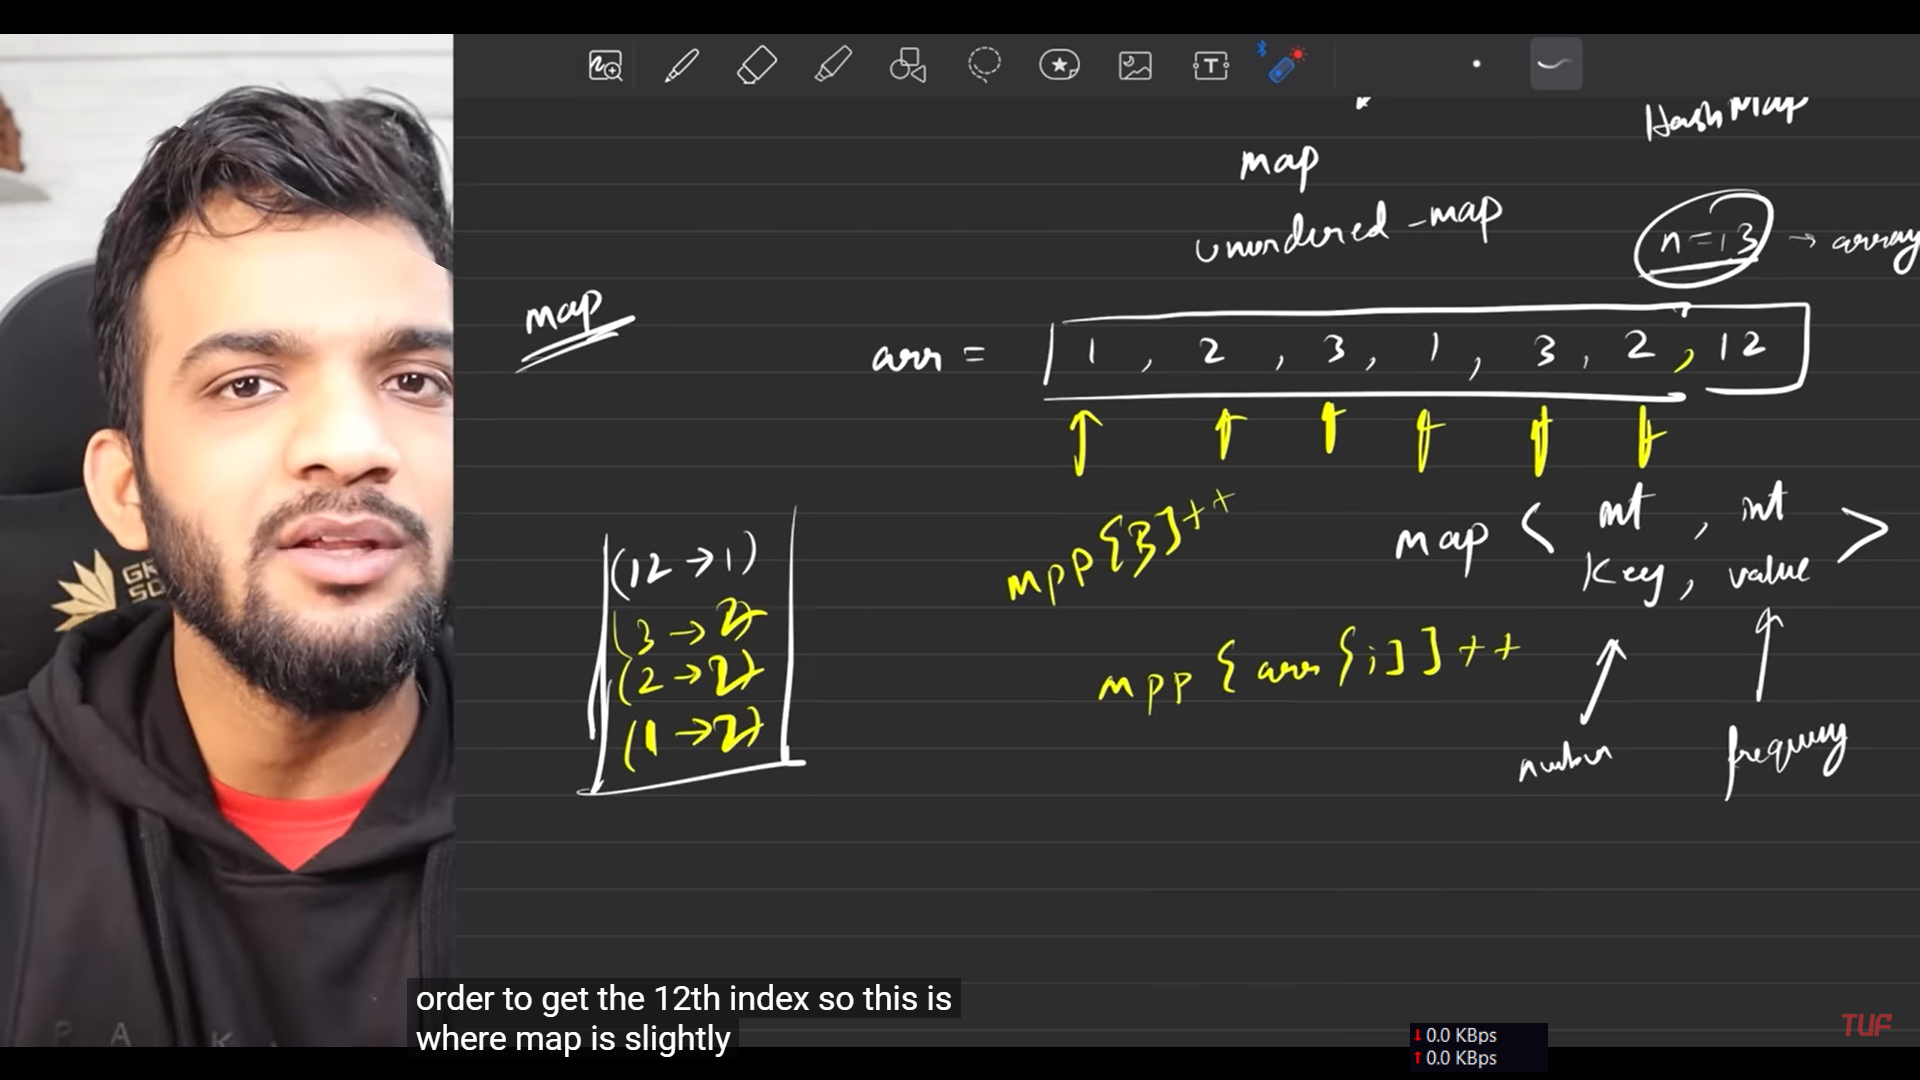 HashMap
map
unordered_map
n=13 → array
map
arr = 1, 2, 3, 1, 3, 2, 12
mpp[3]++
map < int, int >
Key, value
(12→1)
(3→2)
(2→2)
(1→2)
mpp[arr[i]]++
number
frequency
order to get the 12th index so this is
where map is slightly
TUF
0.0 KBps
0.0 KBps